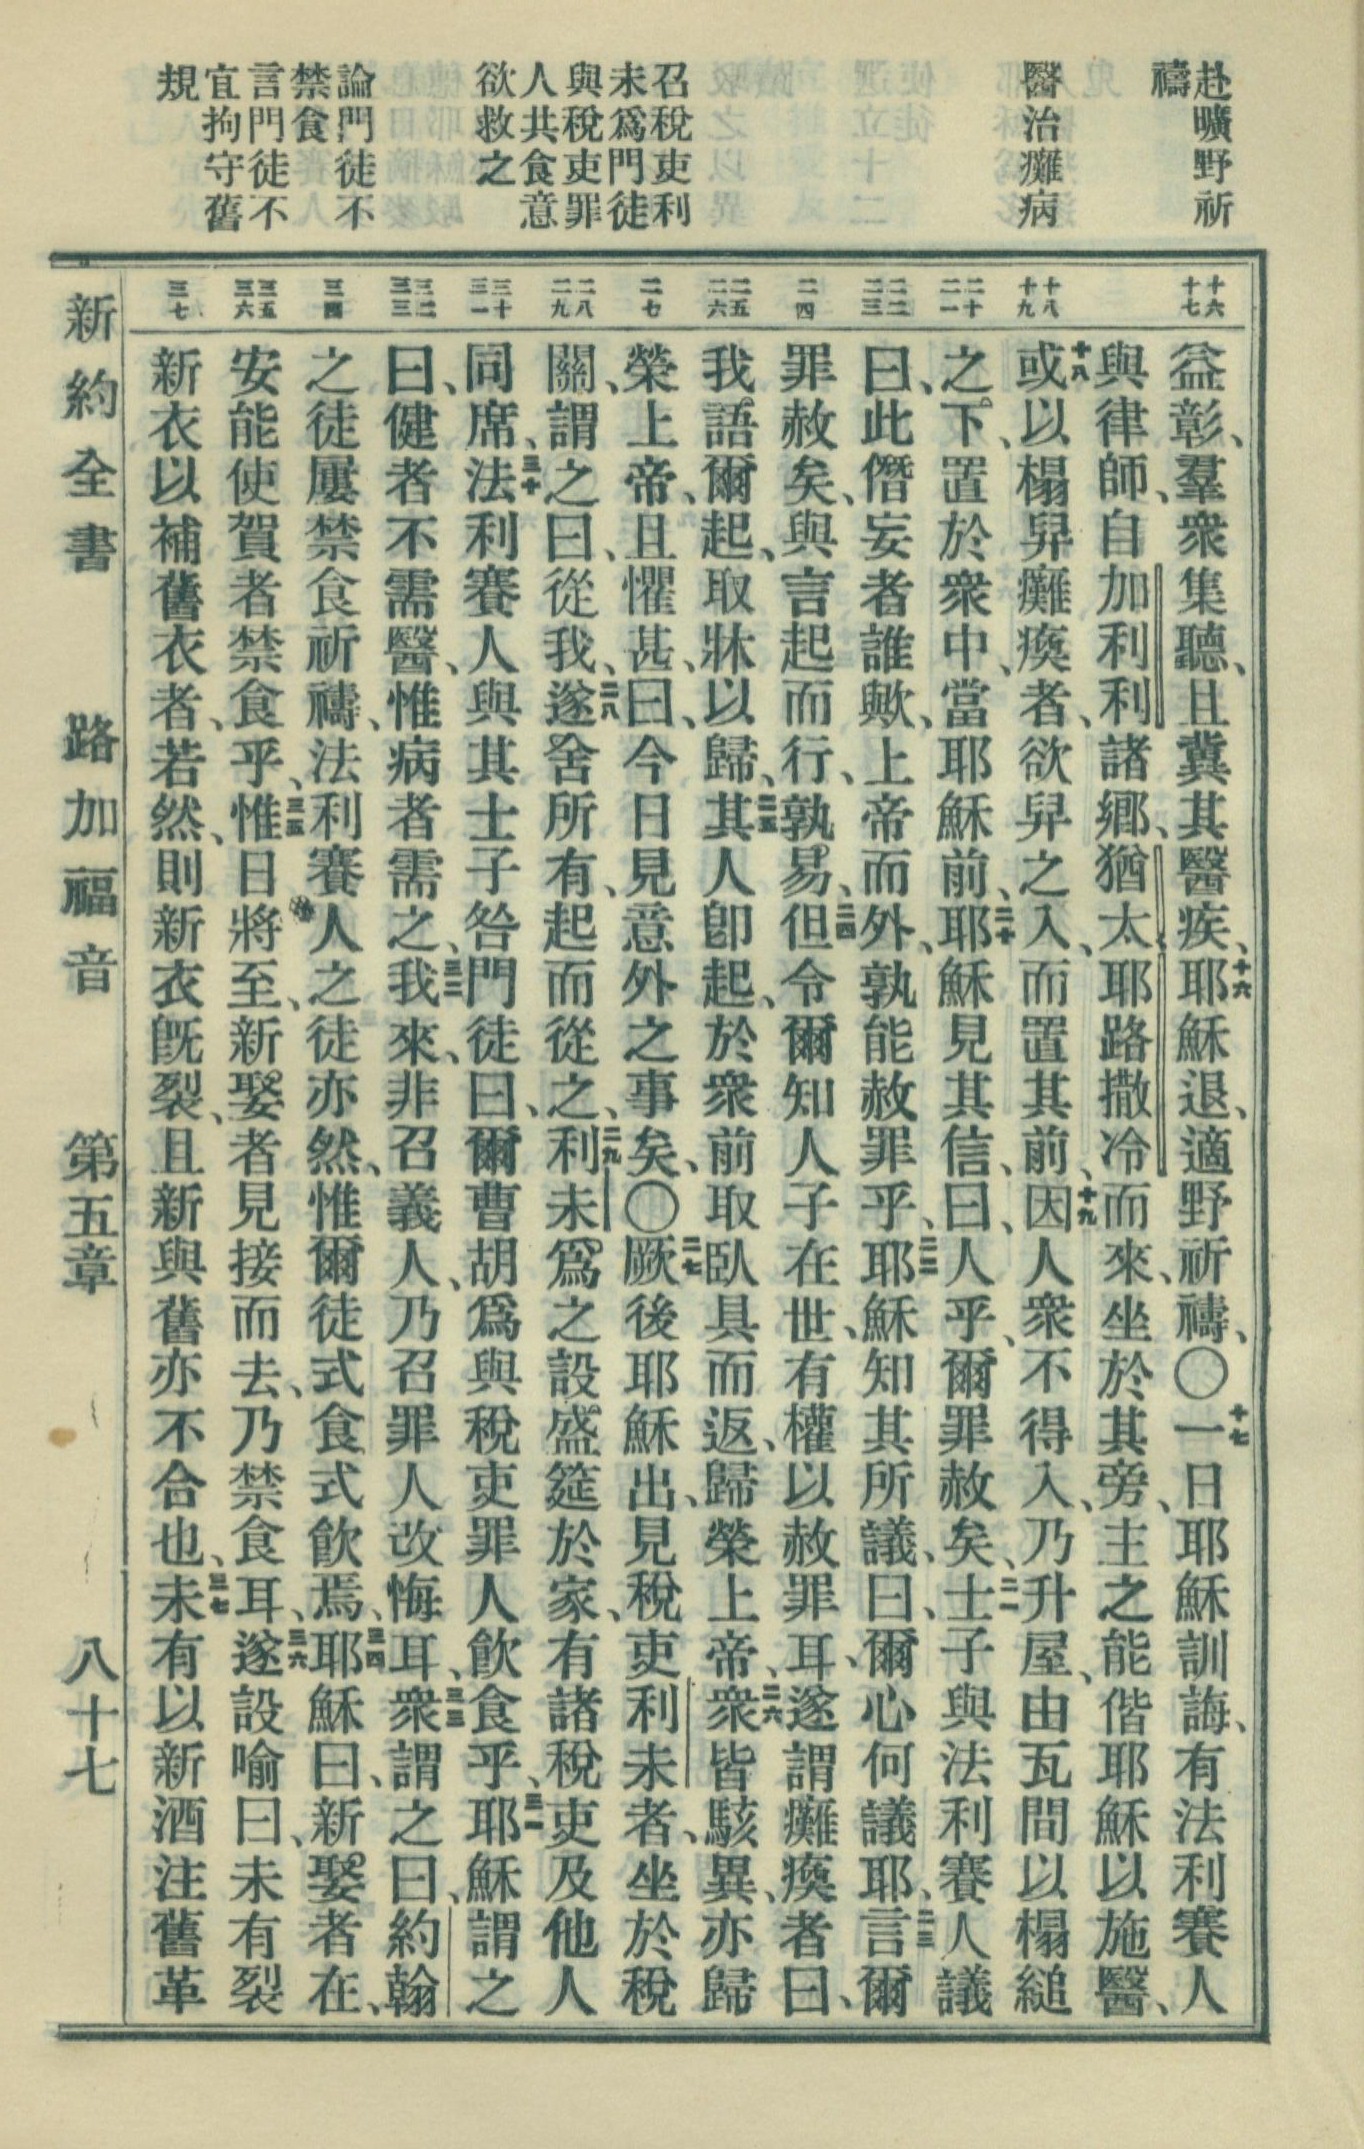 赴曠野祈
禱
醫治癱病
召稅吏利
未爲門徒
與稅吏罪
人共食意
欲救之
論門徒不
禁食
言門徒不
宜拘守舊
規
十六
十七
十八
十九
二十
二一
二二
二三
二四
二五
二六
二七
二八
二九
三十
三一
三二
三三
三四
三五
三六
三七
益彰、羣衆集聽、且冀其醫疾、十六耶穌退、適野祈禱、〇十七一日耶穌訓誨、有法利賽人
與律師、自加利利諸鄉、猶太耶路撒冷而來、坐於其旁、主之能偕耶穌以施醫、
十八或以榻舁癱瘓者、欲舁之入、而置其前、十九因人衆不得入、乃升屋、由瓦間以榻縋
之下、置於衆中、當耶穌前、二十耶穌見其信、曰、人乎、爾罪赦矣、二一士子與法利賽人議
曰、此僭妄者誰歟、上帝而外、孰能赦罪乎、二二耶穌知其所議、曰、爾心何議耶、二三言爾
罪赦矣、與言起而行、孰易、二四但令爾知人子在世、有權以赦罪耳、遂謂癱瘓者曰、
我語爾起、取牀以歸、二五其人卽起、於衆前取臥具而返、歸榮上帝、二六衆皆駭異、亦歸
榮上帝、且懼甚、曰、今日見意外之事矣、〇二七厥後耶穌出、見稅吏利未者、坐於稅
關、謂之曰、從我、二八遂舍所有、起而從之、二九利未爲之設盛筵於家、有諸稅吏及他人
同席、三十法利賽人與其士子咎門徒曰、爾曹胡爲與稅吏罪人飮食乎、三一耶穌謂之
曰、健者不需醫、惟病者需之、三二我來、非召義人、乃召罪人改悔耳、三三衆謂之曰、約翰
之徒屢禁食祈禱、法利賽人之徒亦然、惟爾徒式食式飮焉、三四耶穌曰、新娶者在、
安能使賀者禁食乎、三五惟日將至、新娶者見接而去、乃禁食耳、三六遂設喻曰、未有裂
新衣以補舊衣者、若然、則新衣旣裂、且新與舊亦不合也、三七未有以新酒注舊革
新約全書　路加福音　第五章　八十七